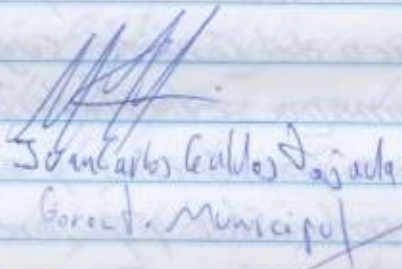 Juan Carlos Galdos Tejada
Gerect. Municipal